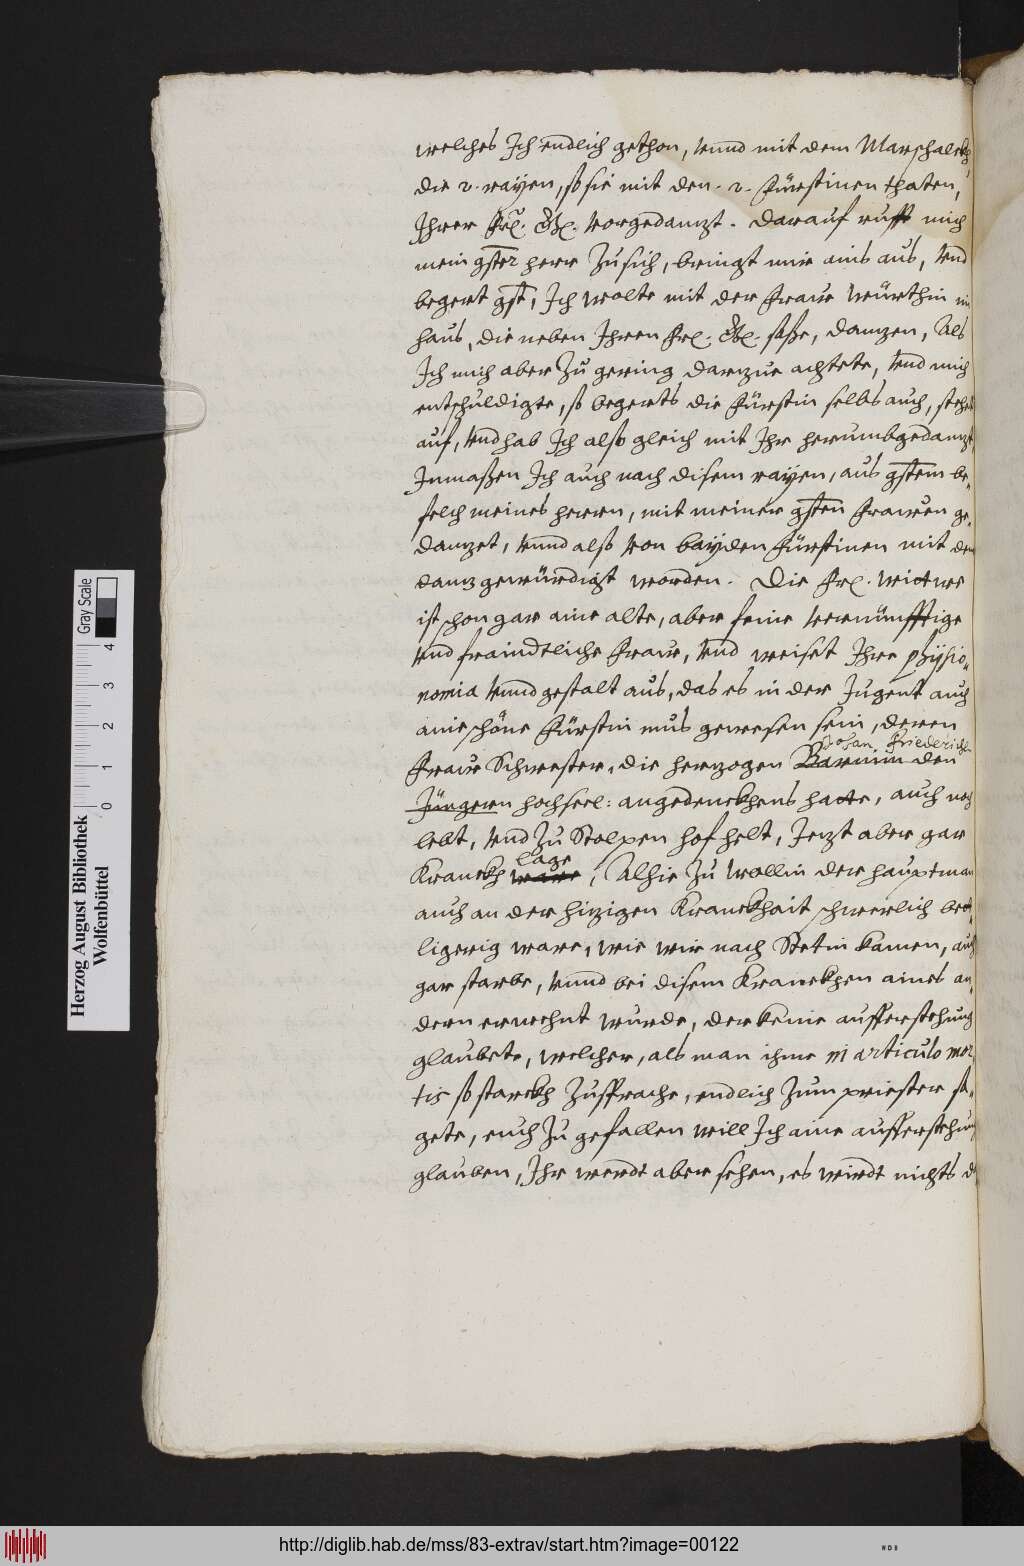 welches Ich endlich gethon, vnnd mit dem Marschalckh,
die 2. rayen, so sie mit den 2. Fürstinen thaten,
Ihrer Frl. Gl. vorgedanzt. darauf rufft mich
mein gster herr zu sich, bringt mir ains aus, vnd
begert gst, Ich wolte mit der Fraw würthin im
haus, die neben Ihren Frl. Gl. saße, danzen, Als
Ich mich aber zu gering darzue achtete, vnd mich
entschuldigte, so begerts die Fürstin selbs auch, stehet
auf, vnd hab Ich also gleich mit Ihr herumbgedanzt,
Inmaßen Ich auch nach disem rayen, aus gstem be-
felch meines herrn, mit meiner gsten Frawen ge-
danzet, vnnd also von bayden Fürstinen mit dem
danz gewürdigt worden. Die Frl. witwe
ist schon gar aine alte, aber feine vernünfftige
vnd fraindtliche Fraw, vnd weiset Ihre physio-
nomia vnnd gestalt aus, das es in der Jugent auch
aine schöne Fürstin mus gewesen sein, deren
Johan Friederich
Fraw Schwester, die herzogen Barnim den
Jüngern hochseel: angedenckhens hatte, auch noch
lebt, vnd zu Stolpen hof helt, Jezt aber gar
lage
Kranckh ware, Alhie zu Wollin der hauptman
auch an der hizigen Kranckhait schwerlich bet-
ligerig ware, wie wir nach Stetin kamen, auch
gar starbe, vnnd bei disem Kranckhen aines an-
dern erwehnt wurde, der keine aufferstehung
glaubete, welcher, als man ihme in articulo mor
tis so starckh zusprache, endlich zum priester sa-
gete, euch zu gefallen will Ich aine aufferstehung
glauben, Ihr werdt aber sehen, es wirdt nichts
Herzog August Bibliothek
Wolfenbüttel
Gray Scale
0 1 2 3 4
http://diglib.hab.de/mss/83-extrav/start.htm?image=00122